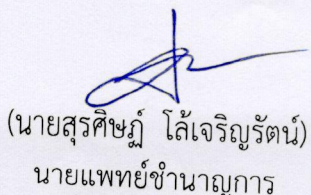 (นายสุรศิษฏ์ โล้เจริญรัตน์)
นายแพทย์ชำนาญการ